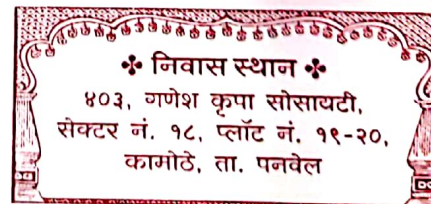 निवास स्थान
४०३, गणेश कृपा सोसायटी,
सेक्टर नं. १८, प्लॉट नं. १९-२०,
कामोठे, ता. पनवेल